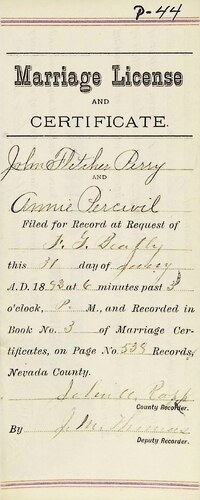 P-44
Marriage License
AND
CERTIFICATE.
John Fletcher Perry
AND
Annie Percivil
Filed for Record at Request of
this 31 day of
A.D. 1893 at 6 minutes past 3
o'clock, P. M., and Recorded in
Book No. 3 of Marriage Cer-
tificates, on Page No. 538 Records,
Nevada County.
John A. Rapp
County Recorder.
By J. M. Thomas
Deputy Recorder.